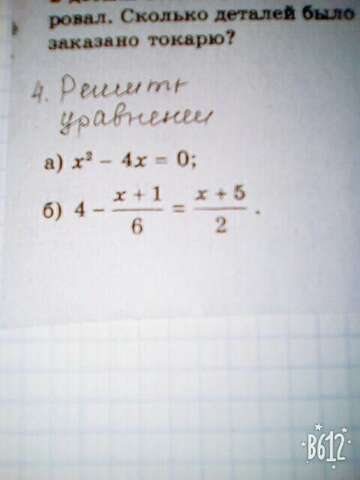 ровал. Сколько деталей было
заказано токарю?
4. Решить
уравнении
а) x² − 4x = 0;
б) 4 − (x + 1)/6 = (x + 5)/2 .
B612